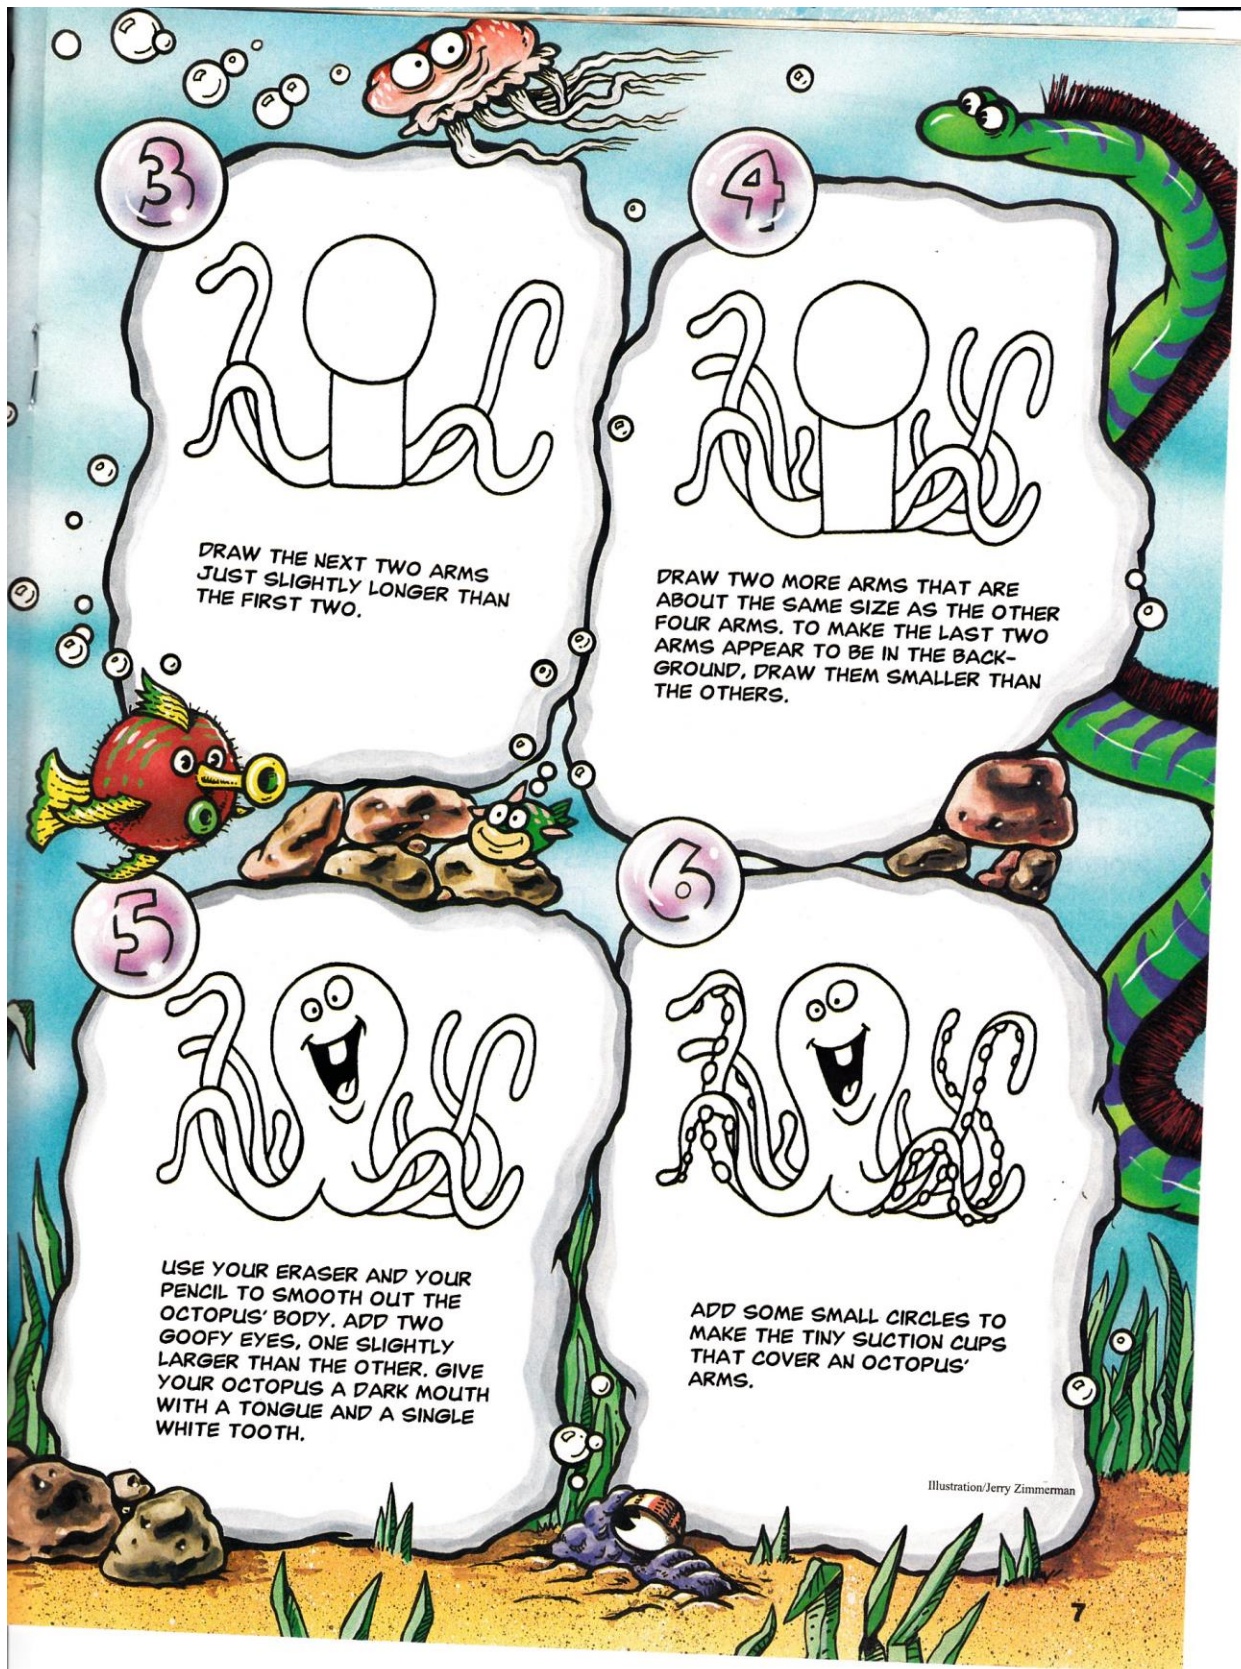 3
DRAW THE NEXT TWO ARMS
JUST SLIGHTLY LONGER THAN
THE FIRST TWO.
4
DRAW TWO MORE ARMS THAT ARE
ABOUT THE SAME SIZE AS THE OTHER
FOUR ARMS. TO MAKE THE LAST TWO
ARMS APPEAR TO BE IN THE BACK-
GROUND, DRAW THEM SMALLER THAN
THE OTHERS.
5
USE YOUR ERASER AND YOUR
PENCIL TO SMOOTH OUT THE
OCTOPUS' BODY. ADD TWO
GOOFY EYES, ONE SLIGHTLY
LARGER THAN THE OTHER. GIVE
YOUR OCTOPUS A DARK MOUTH
WITH A TONGUE AND A SINGLE
WHITE TOOTH.
6
ADD SOME SMALL CIRCLES TO
MAKE THE TINY SUCTION CUPS
THAT COVER AN OCTOPUS'
ARMS.
Illustration/Jerry Zimmerman
7